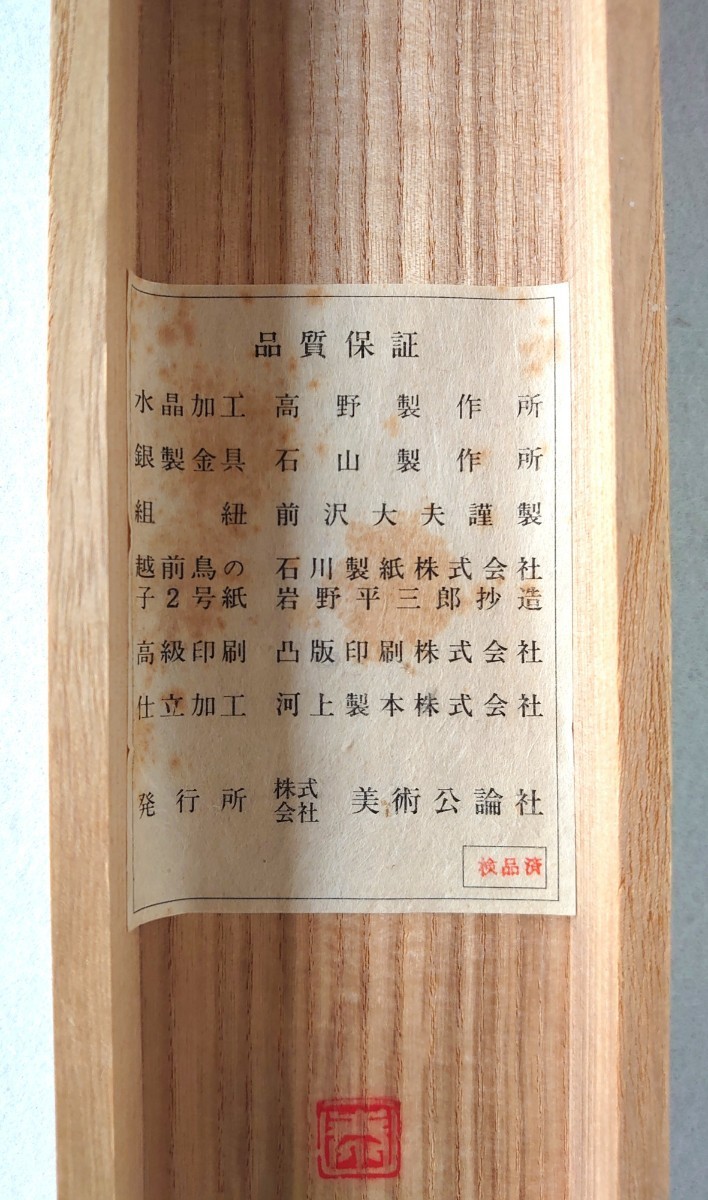 品質保証
水晶加工 高野製作所
銀製金具 石山製作所
組紐 前沢大夫謹製
越前鳥の子2号紙 石川製紙株式会社
岩野平三郎抄造
高級印刷 凸版印刷株式会社
仕立加工 河上製本株式会社
発行所 株式会社 美術公論社
検品済